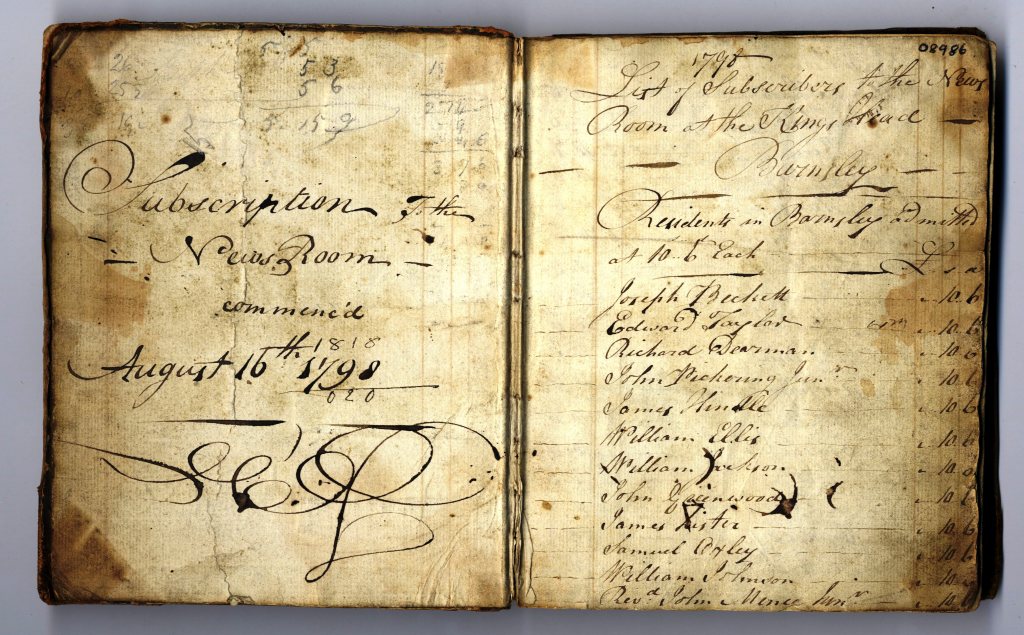 26
5 3
5 6
5 . 15 . 9
Subscription To the
News Room
commenc'd
1818
August 16th 1798
020
08986
1798
List of Subscribers to the News
Room at the Kings Head
Barnsley
Residents in Barnsley admitted
at 10.6 Each £ s d
Joseph Beckett 10.6
Edward Taylor 10.6
Richard Dearman 10.6
John Pickering Junr 10.6
James Hindle 10.6
William Ellis 10.6
William Jackson 10.6
John Greenwood 10.6
James Lister 10.6
Samuel Oxley 10.6
William Johnson 10.6
Revd John Mence Junr 10.6